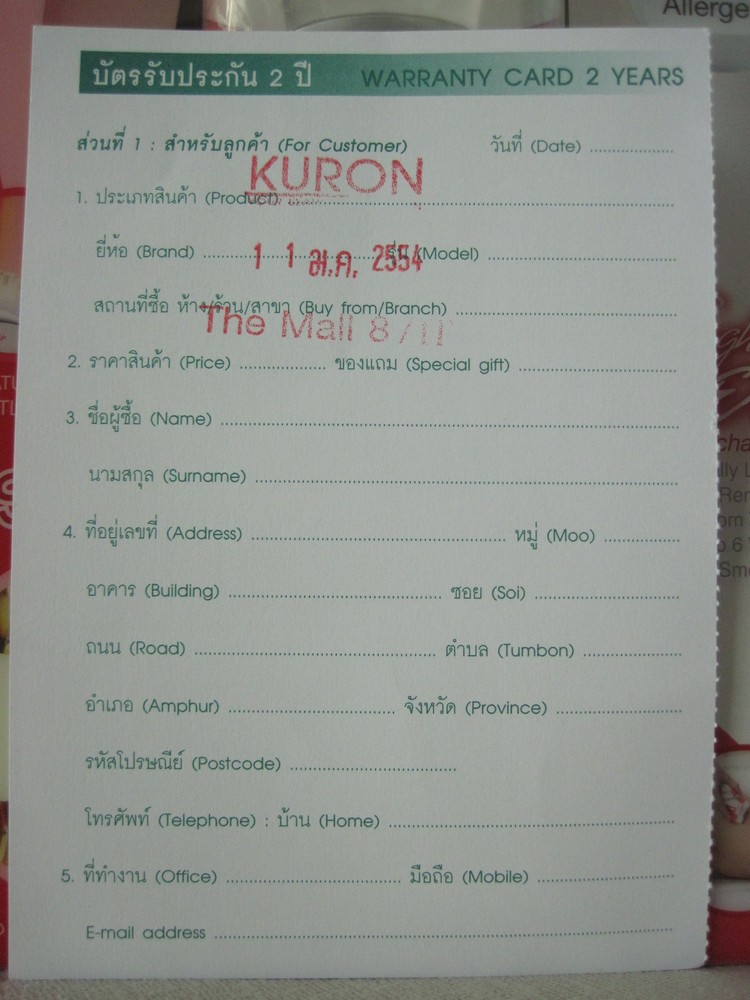 Allerge
บัตรรับประกัน 2 ปี WARRANTY CARD 2 YEARS
ส่วนที่ 1 : สำหรับลูกค้า (For Customer) วันที่ (Date) ....................
KURON
1. ประเภทสินค้า (Product) ....................
ยี่ห้อ (Brand) .................... รุ่น (Model) ....................
1 1 ม.ค. 2554
สถานที่ซื้อ ห้าง/ร้าน/สาขา (Buy from/Branch) ....................
The Mall 8
2. ราคาสินค้า (Price) .................... ของแถม (Special gift) ....................
3. ชื่อผู้ซื้อ (Name) ....................
นามสกุล (Surname) ....................
4. ที่อยู่เลขที่ (Address) .................... หมู่ (Moo) ....................
อาคาร (Building) .................... ซอย (Soi) ....................
ถนน (Road) .................... ตำบล (Tumbon) ....................
อำเภอ (Amphur) .................... จังหวัด (Province) ....................
รหัสไปรษณีย์ (Postcode) ....................
โทรศัพท์ (Telephone) : บ้าน (Home) ....................
5. ที่ทำงาน (Office) .................... มือถือ (Mobile) ....................
E-mail address ....................